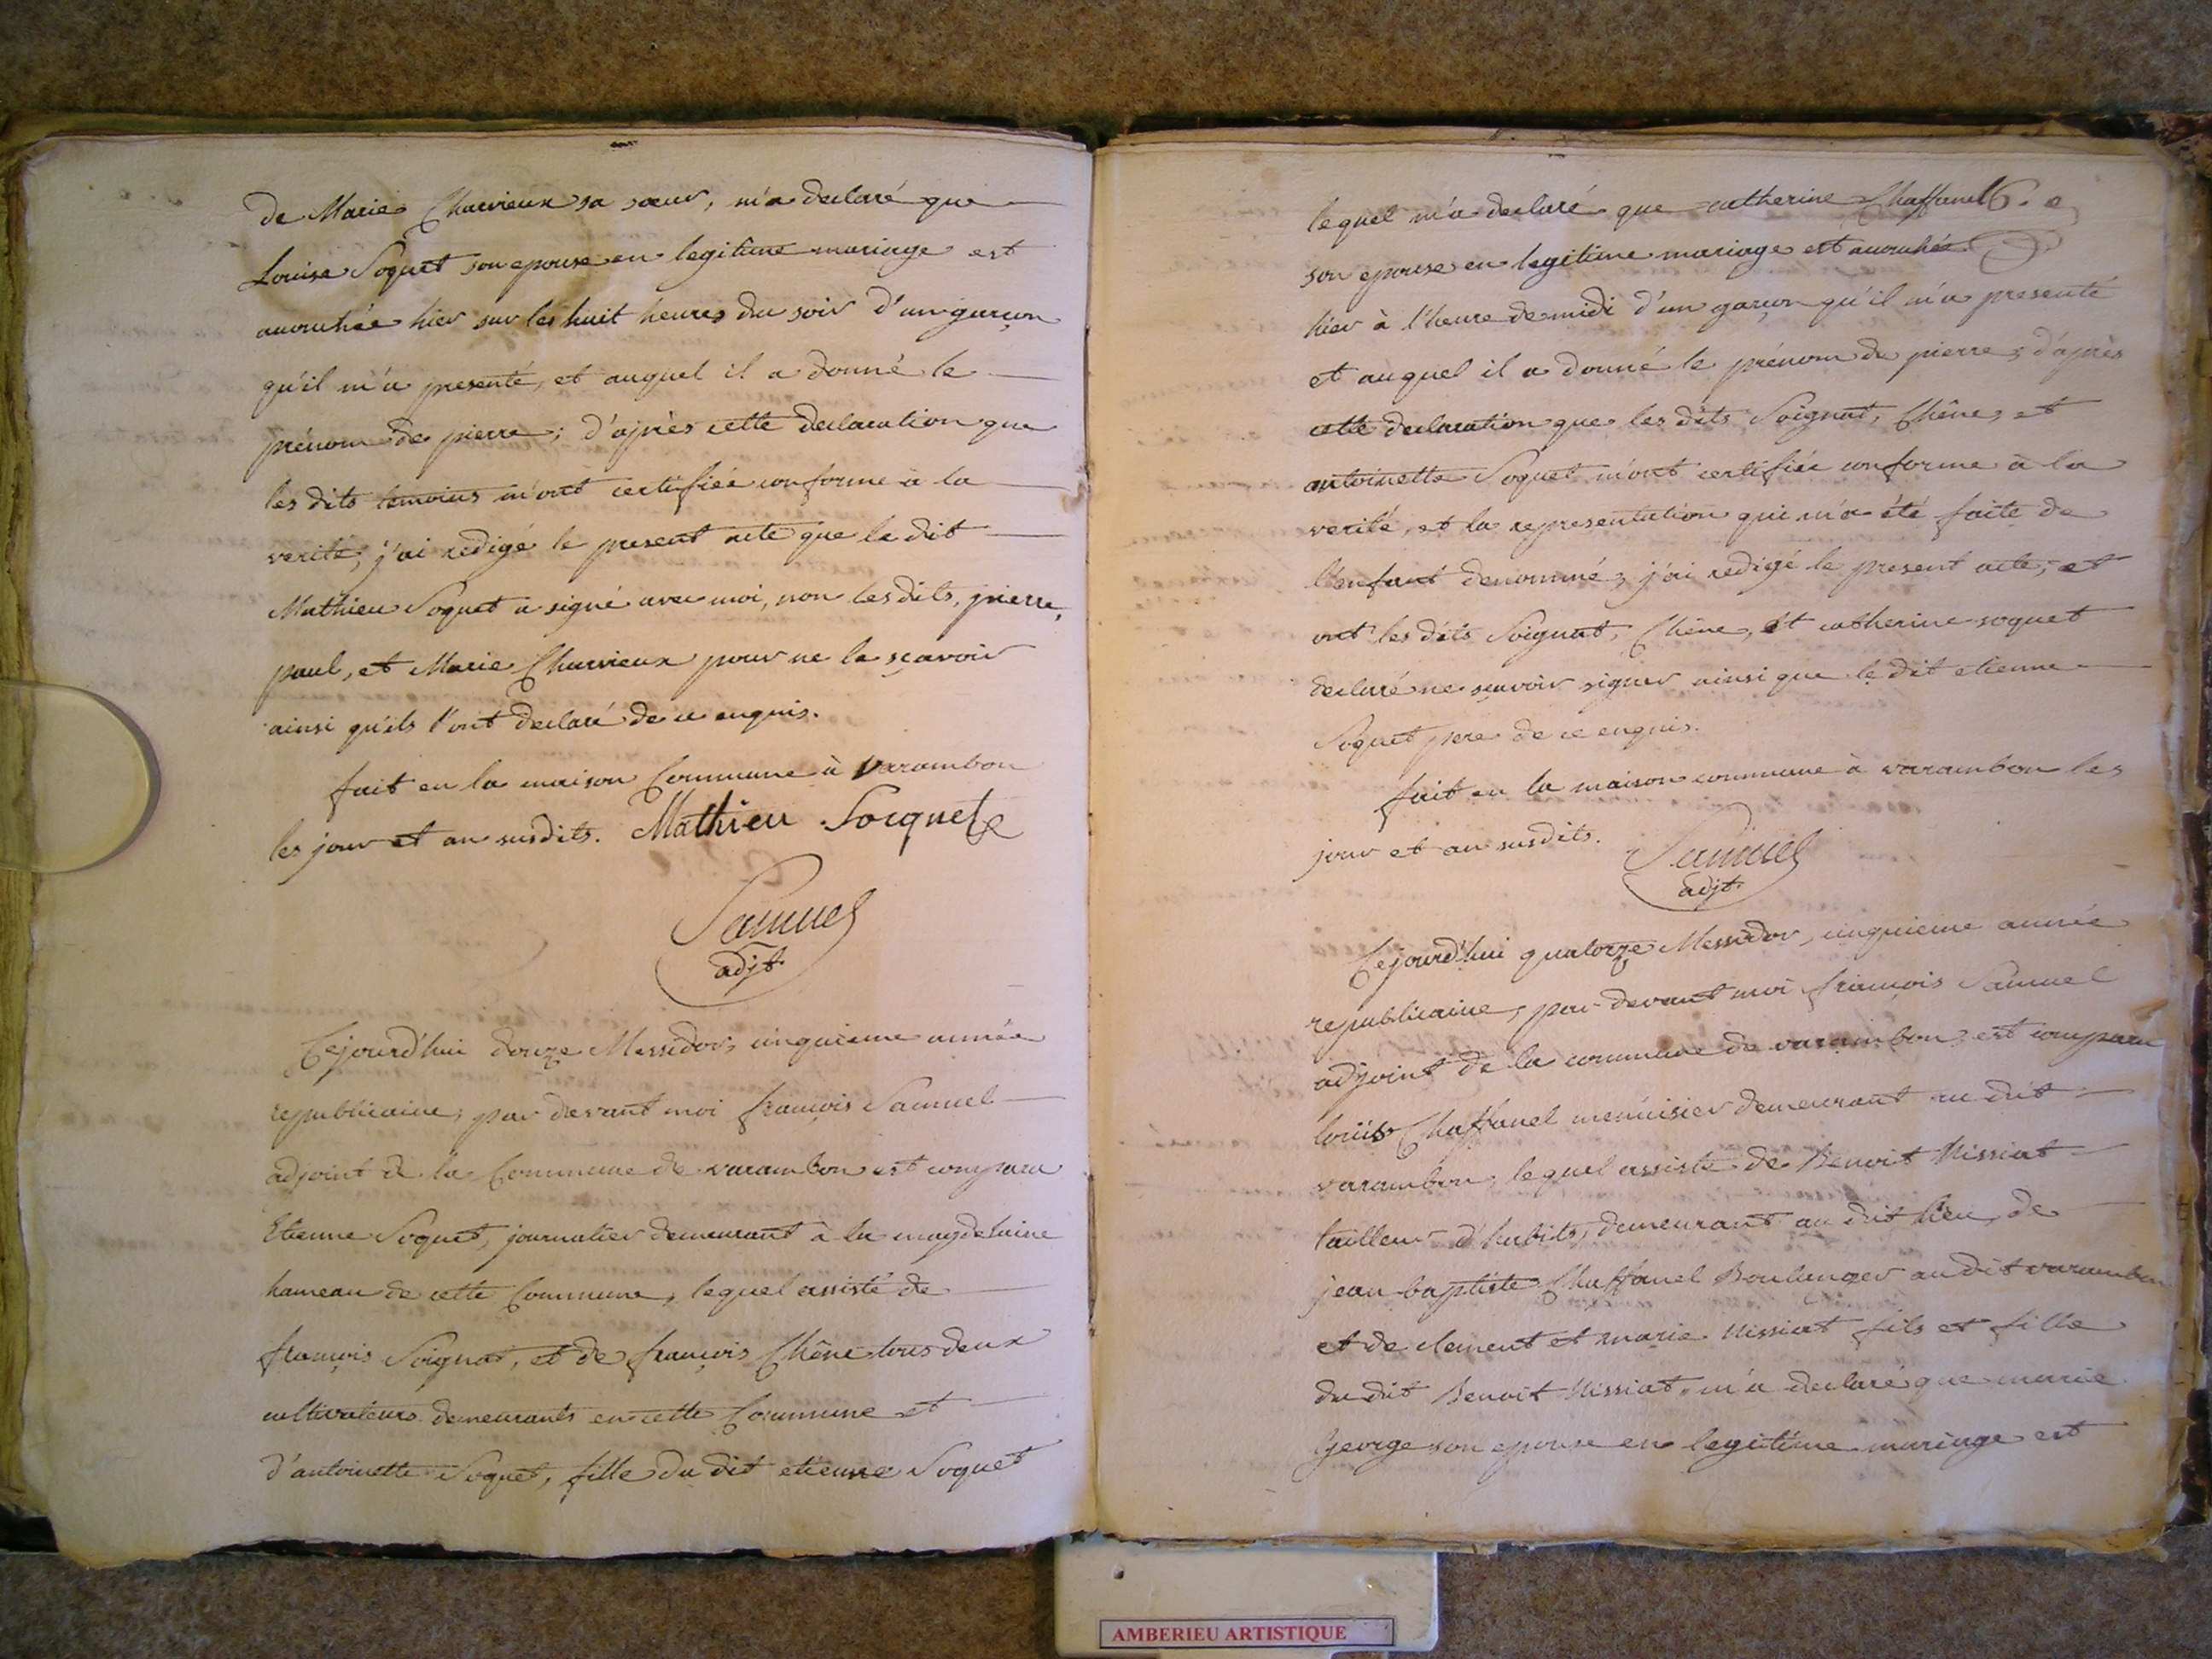 de Marie Charvieux sa sœur, m'a declaré que
Louise Soquet son epouse en legitime mariage est
accouchée hier sur les huit heures du soir d'un garçon
qu'il m'a presenté, et auquel il a donné le
prénom de pierre; d'après cette declaration que
les dits temoins m'ont certifiée conforme à la
verité, j'ai redigé le present acte que le dit
Mathieu Soquet a signé avec moi, non les dits, pierre,
paul, et Marie Charvieux pour ne le sçavoir
ainsi qu'ils l'ont declaré de ce enquis.
fait en la maison Commune à Varambon
les jour et an susdits. Mathieu Socquet
Samuel
adjt.
Cejourd'hui douze Messidor, cinquieme année
republicaine, par devant moi françois Samuel
adjoint de la Commune de varambon est comparu
Etienne Soquet, journalier demeurant à la magdelaine
hameau de cette Commune, lequel assisté de
françois Soignat, et de françois Chêne tous deux
cultivateurs demeurants en cette Commune et
d'antoinette Soquet, fille du dit etienne Soquet
lequel m'a declaré que catherine Chaffanel 6.
son epouse en legitime mariage est accouchée
hier à l'heure de midi d'un garçon qu'il m'a presenté
et auquel il a donné le prénom de pierre, d'après
cette declaration que les dits Soignat, Chêne, et
antoinette Soquet m'ont certifiée conforme à la
verité, et la representation qui m'a été faite de
l'enfant denommé, j'ai redigé le present acte, et
ont les dits Soignat, Chêne, et catherine soquet
declaré ne sçavoir signer ainsi que le dit etienne
Soquet pere de ce enquis.
fait en la maison commune à varambon les
jour et an susdits.
Samuel
adjt.
Cejourd'hui quatorze Messidor, cinquieme année
republicaine, par devant moi françois Samuel
adjoint de la commune de varambon est comparu
louis Chaffanel menuisier demeurant au dit
varambon, lequel assisté de Benoit Missiat
tailleur d'habits, demeurant au dit lieu, de
jean-baptiste Chaffanel Boulanger au dit varambon
et de clement et marie Missiat fils et fille
du dit Benoit Missiat, m'a declaré que marie
George son epouse en legitime mariage est
AMBERIEU ARTISTIQUE